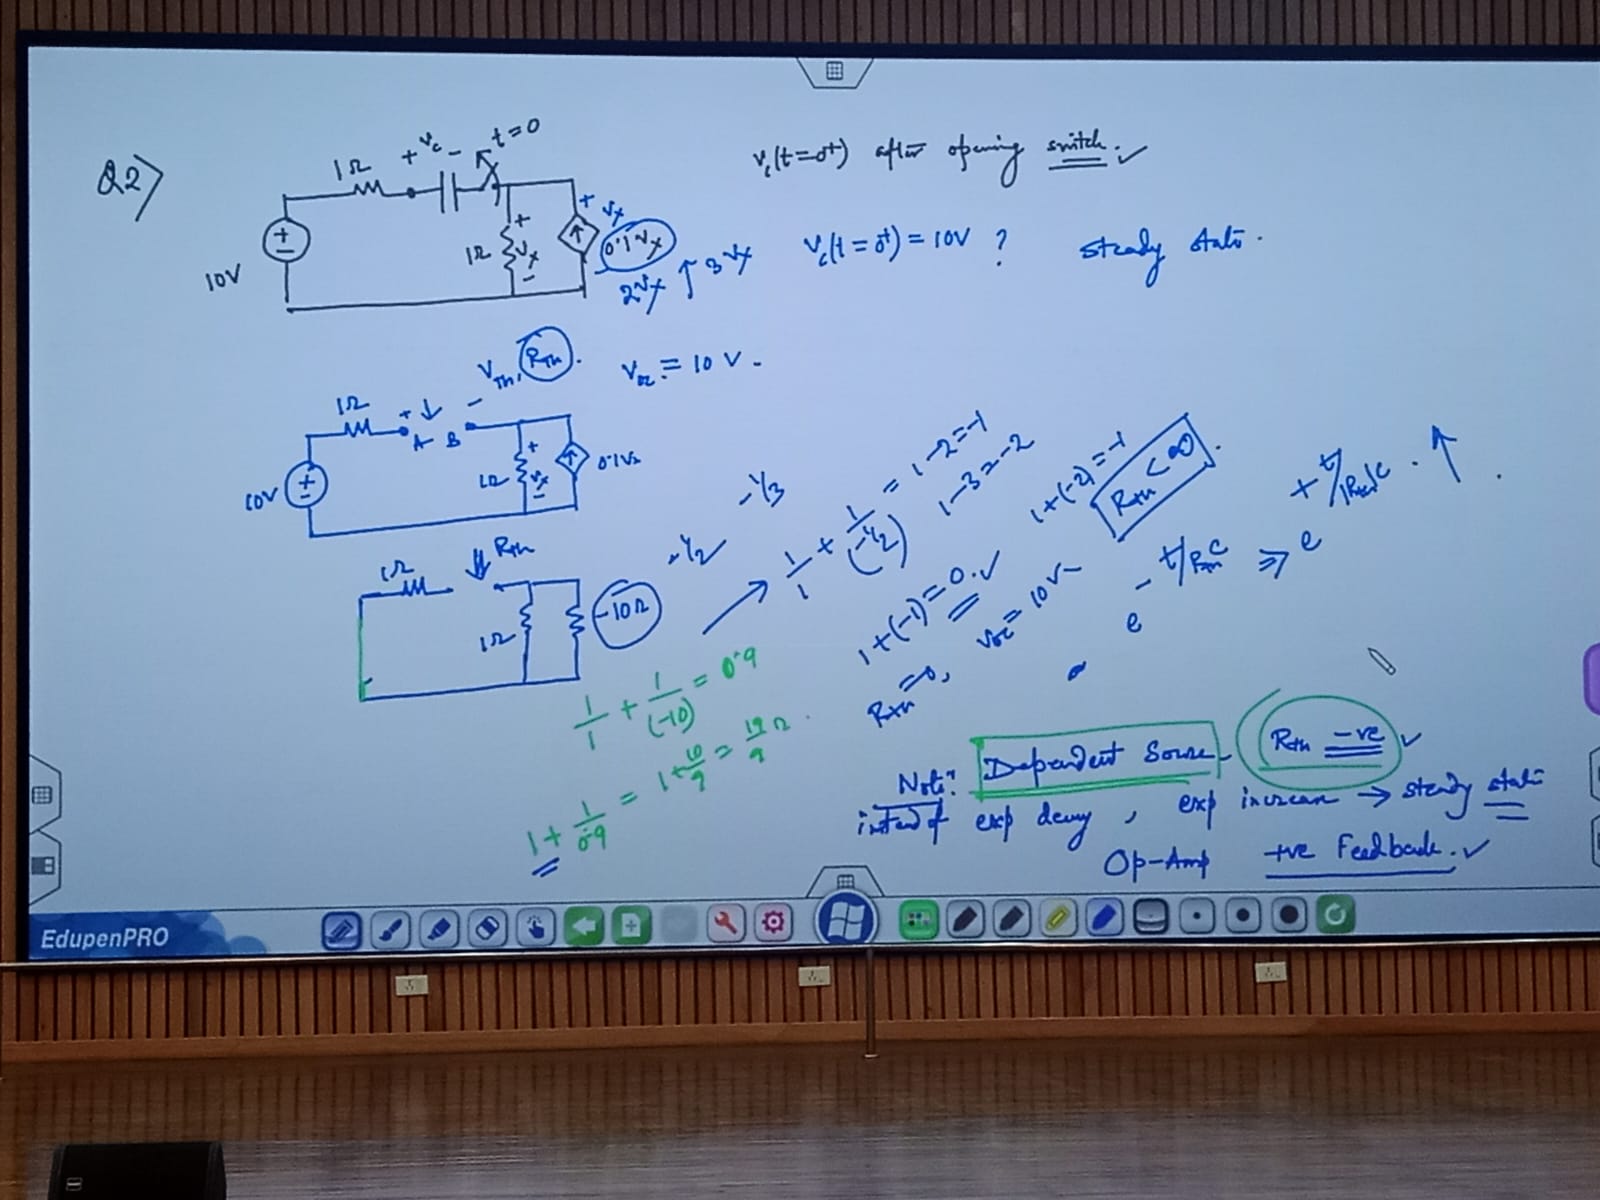 Q2)
1Ω + Vc - t=0
10V + -
1Ω + Vx -
+ Vx
0.1Vx
2Vx ↑ 3Vx
Vc(t=0⁺) after opening switch. ✓
Vc(t=0⁺) = 10V ? steady state.
VTh, RTh. Voc = 10 V.
1Ω + ↓ -
A B
10V + -
1Ω + Vx - 0.1Vx
1Ω RTh
1Ω -10Ω
-1/2 -1/3
1/1 + 1/(-1/2) = 1-2=-1
1-3=-2
1+(-2)=-1
RTh < ∞
1+(-1)=0. ✓
RTh=0, Voc=10V
e -t/RThC ⇒ e +t/|RTh|C . ↑
1/1 + 1/(-10) = 0.9
1 + 1/0.9 = 1+10/9 = 19/9 Ω.
Note: Dependent Source - RTh -ve ✓
instead of exp decay, exp increase → steady state
Op-Amp +ve Feedback. ✓
EdupenPRO